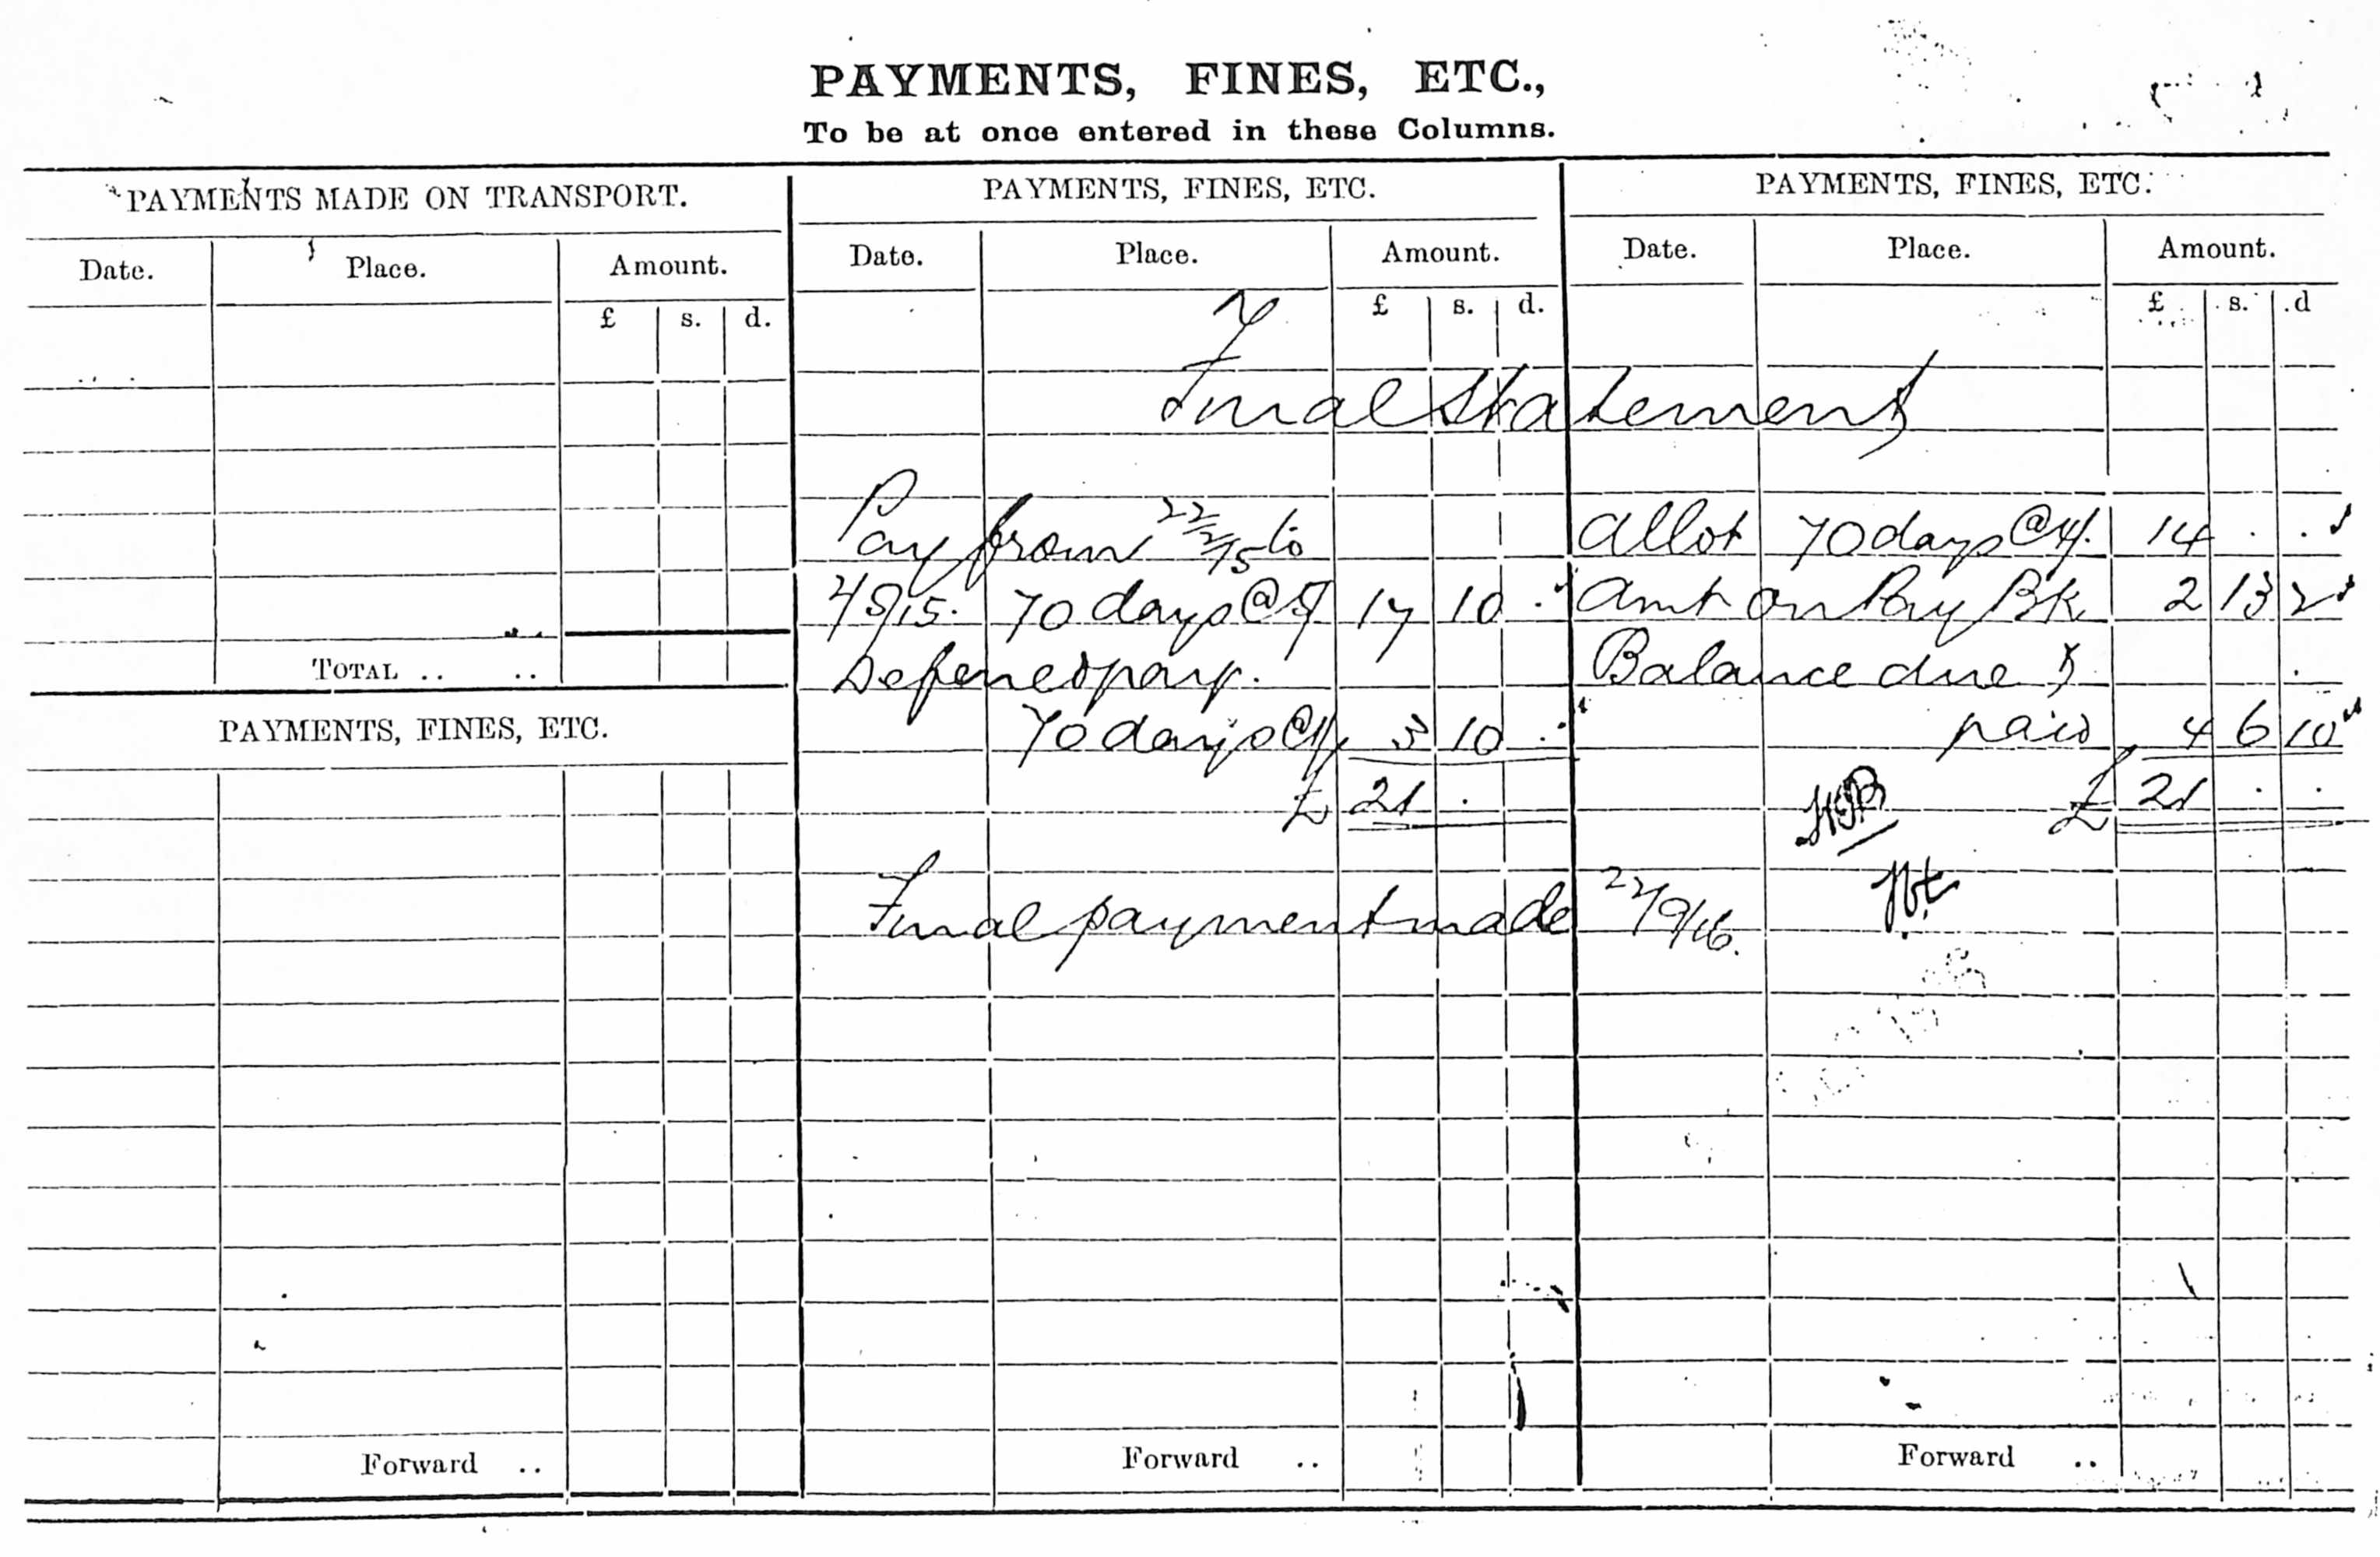 PAYMENTS, FINES, ETC.,
To be at once entered in these Columns.
PAYMENTS MADE ON TRANSPORT.
Date. Place. Amount.
£ s. d.
TOTAL .. ..
PAYMENTS, FINES, ETC.
Forward ..
PAYMENTS, FINES, ETC.
Date. Place. Amount.
£ s. d.
Final Statement
Pay from 22/2/15 to
2/5/15. 70 days @ 5/ 17 10 .
Deferred pay.
70 days @ 1/ 3 10 .
£ 21 .
Final payment made 22/9/16.
Forward ..
PAYMENTS, FINES, ETC.
Date. Place. Amount.
£ s. d
Allot 70 days @ 4/. 14 . .
Amt on Pay Bk 2 13 2
Balance due }
paid 4 6 10
£ 21 . .
Forward ..